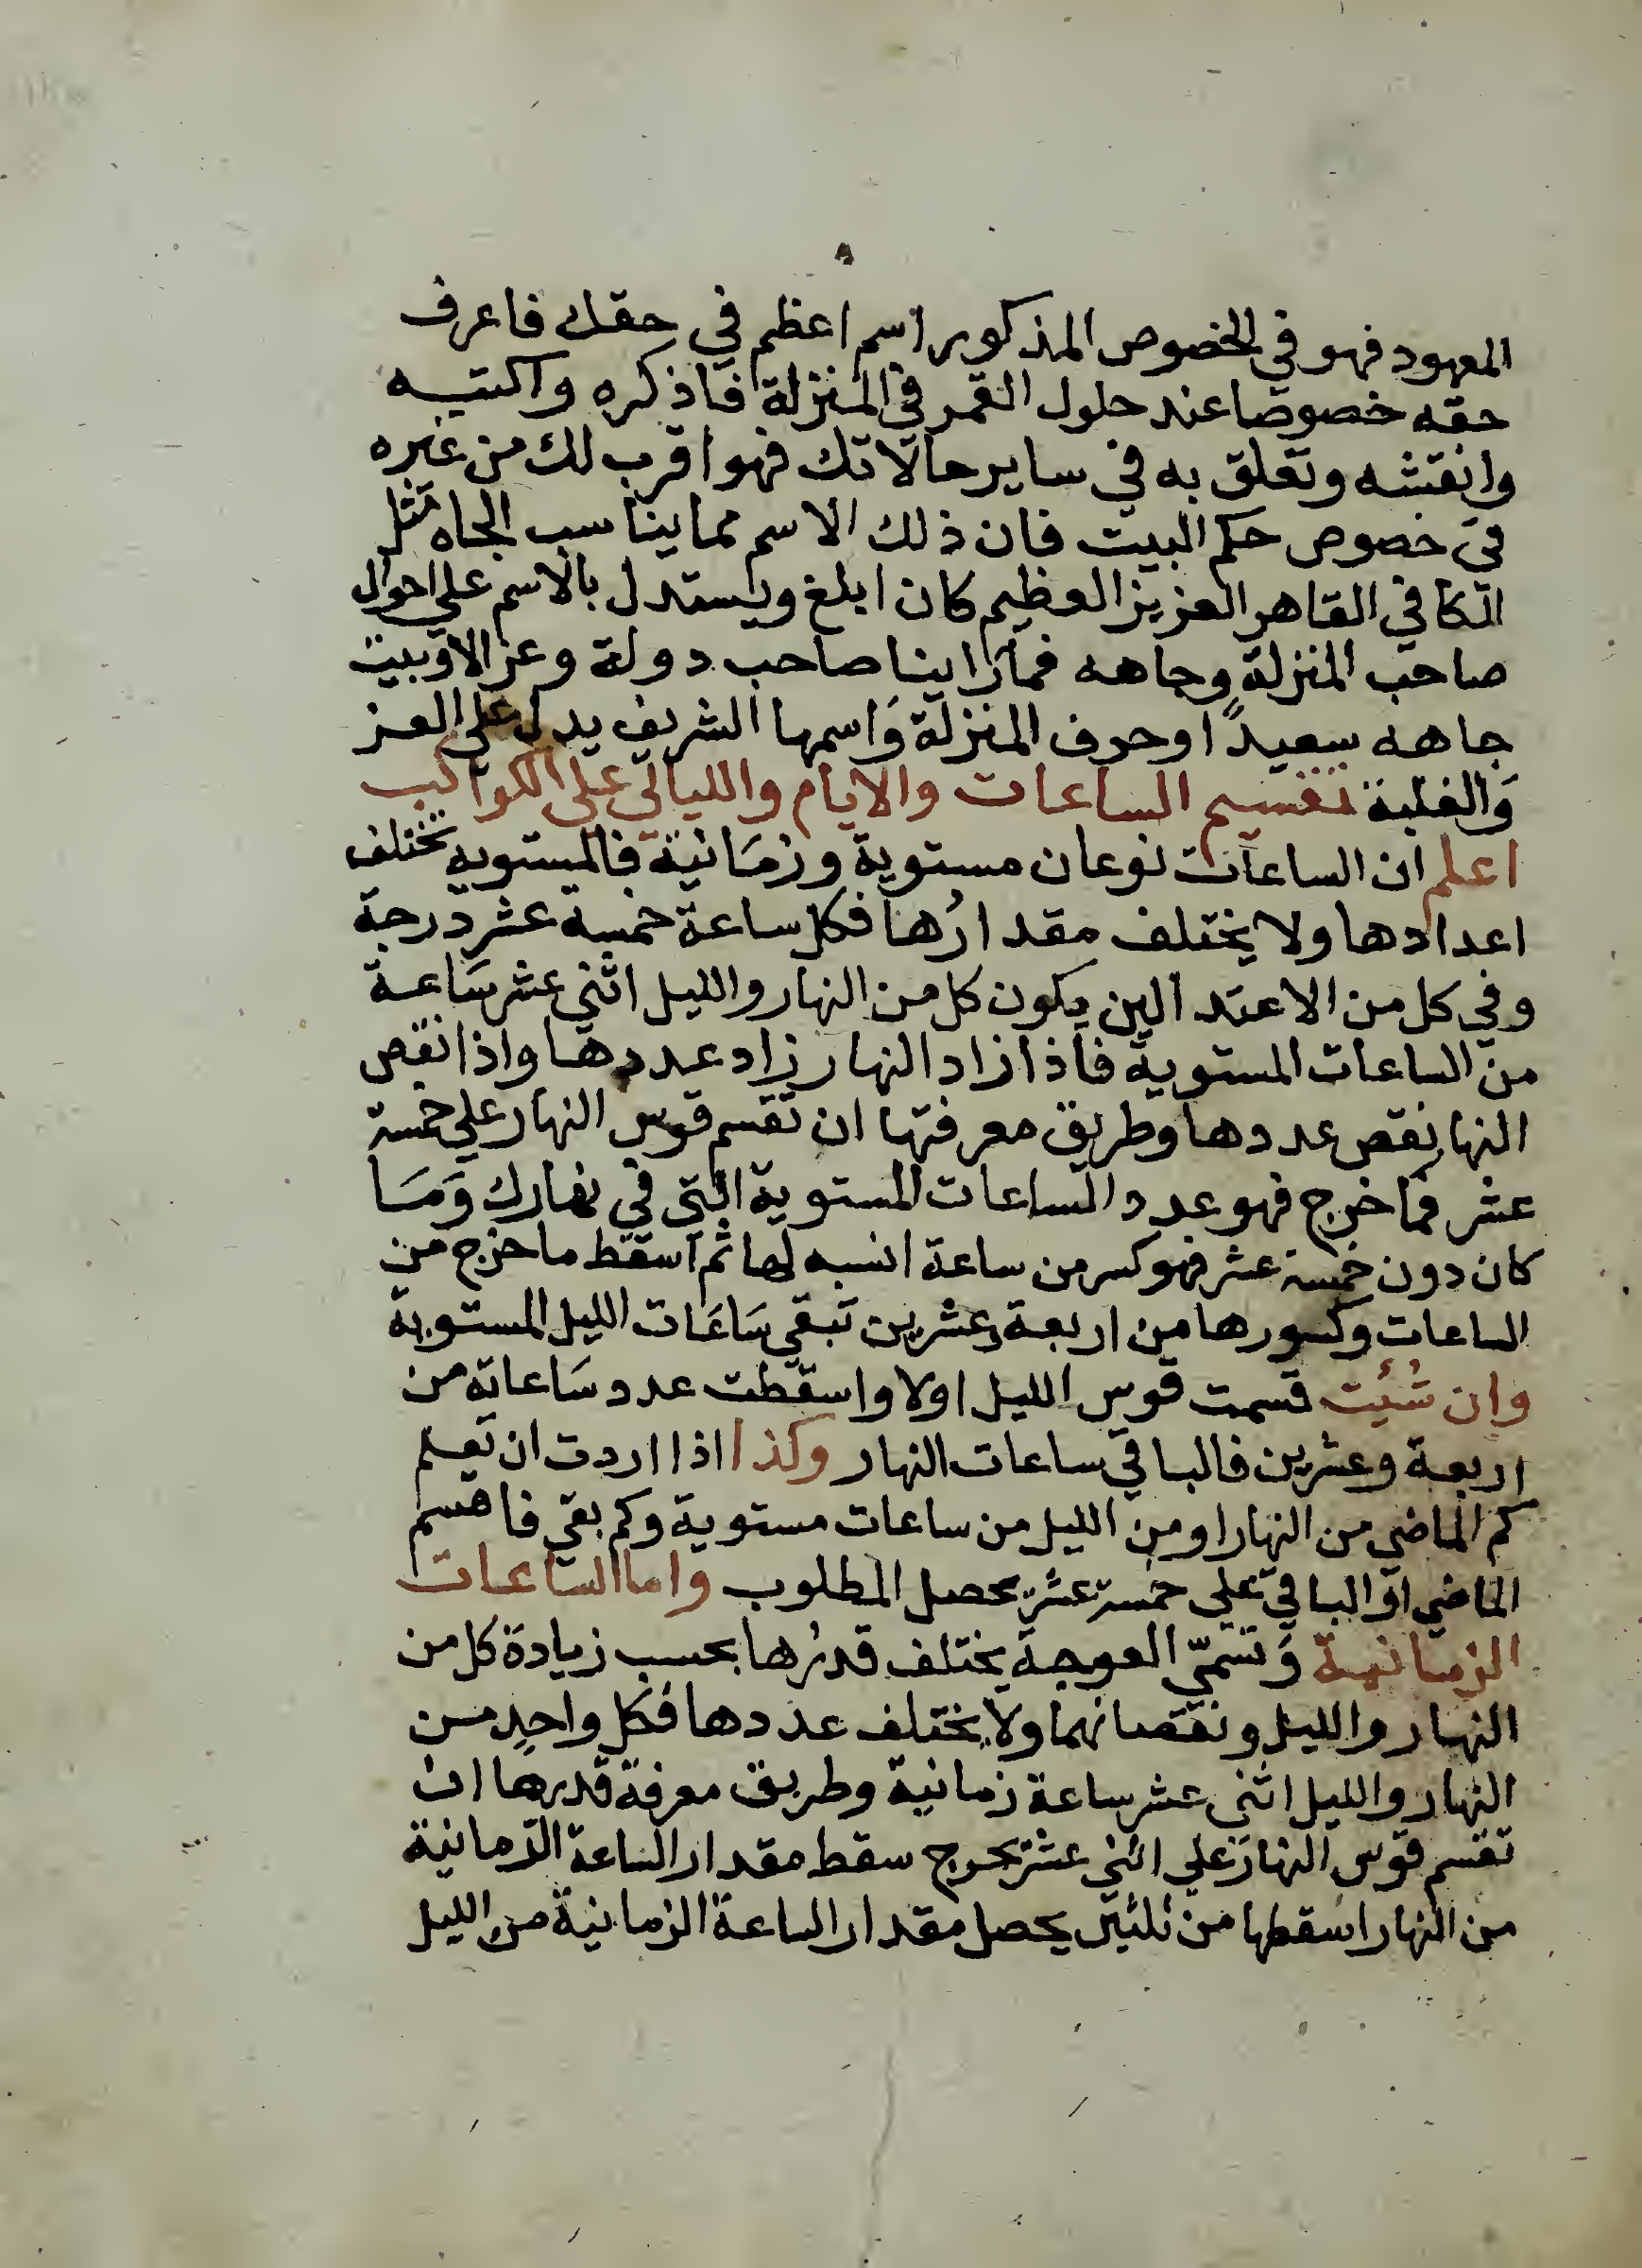 المعهود فهو في الخصوص المذكور اسم اعظم في حقك فاعرف
حقه خصوصا عند حلول القمر في المنزلة فاذكره واكتبه
وانقشه وتعلق به في ساير حالاتك فهو اقرب لك من غيره
في خصوص حكم البيت فان ذلك الاسم مما يناسب الجاه مثل
الكافي القاهر العزيز العظيم كان ابلغ ويستدل بالاسم علي احوال
صاحب المنزلة وجاهه فما راينا صاحب دولة وعز الا وبيت
جاهه سعيدًا وحرف المنزلة واسمها الشريف يدل علي العز
والغلبة تقسيم الساعات والايام والليالي علي الكواكب
اعلم ان الساعات نوعان مستوية وزمانية فالمستويه تختلف
اعدادها ولا يختلف مقدارُها فكل ساعة خمسة عشر درجة
وفي كل من الاعتدالين يكون كل من النهار والليل اثني عشر ساعة
من الساعات المستوية فاذا زاد النهار زاد عددها واذا نقص
النهار نقص عددها وطريق معرفتها ان تقسم قوس النهار علي خمسة
عشر فما خرج فهو عدد الساعات المستوية التي في نهارك وما
كان دون خمسة عشر فهو كسر من ساعة انسبه لها ثم اسقط ما خرج من
الساعات وكسورها من اربعة وعشرين تبقي ساعات الليل المستوية
وان شئت قسمت قوس الليل اولا واسقطت عدد ساعاته من
اربعة وعشرين فالباقي ساعات النهار وكذا اذا اردت ان تعلم
كم الماضي من النهار او من الليل من ساعات مستوية وكم بقي فاقسم
الماضي او الباقي علي خمسة عشر يحصل المطلوب واما الساعات
الزمانية وتسمّي العوجة يختلف قدرُها بحسب زيادة كل من
النهار والليل ونقصانهما ولا يختلف عددها فكل واحدٍ من
النهار والليل اثني عشر ساعة زمانية وطريق معرفة قدرها ان
تقسم قوس النهار علي اثني عشر يخرج سقط مقدار الساعة الزمانية
من النهار اسقطها من ثلثين يحصل مقدار الساعة الزمانية من الليل